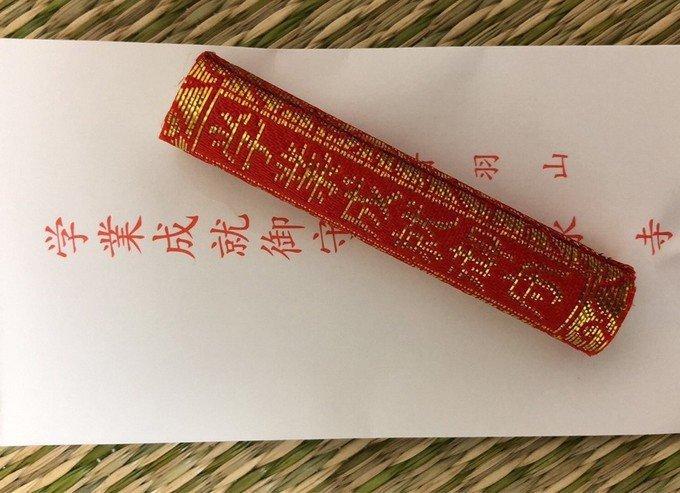 羽山
寺
学業成就御守
学業成就御守